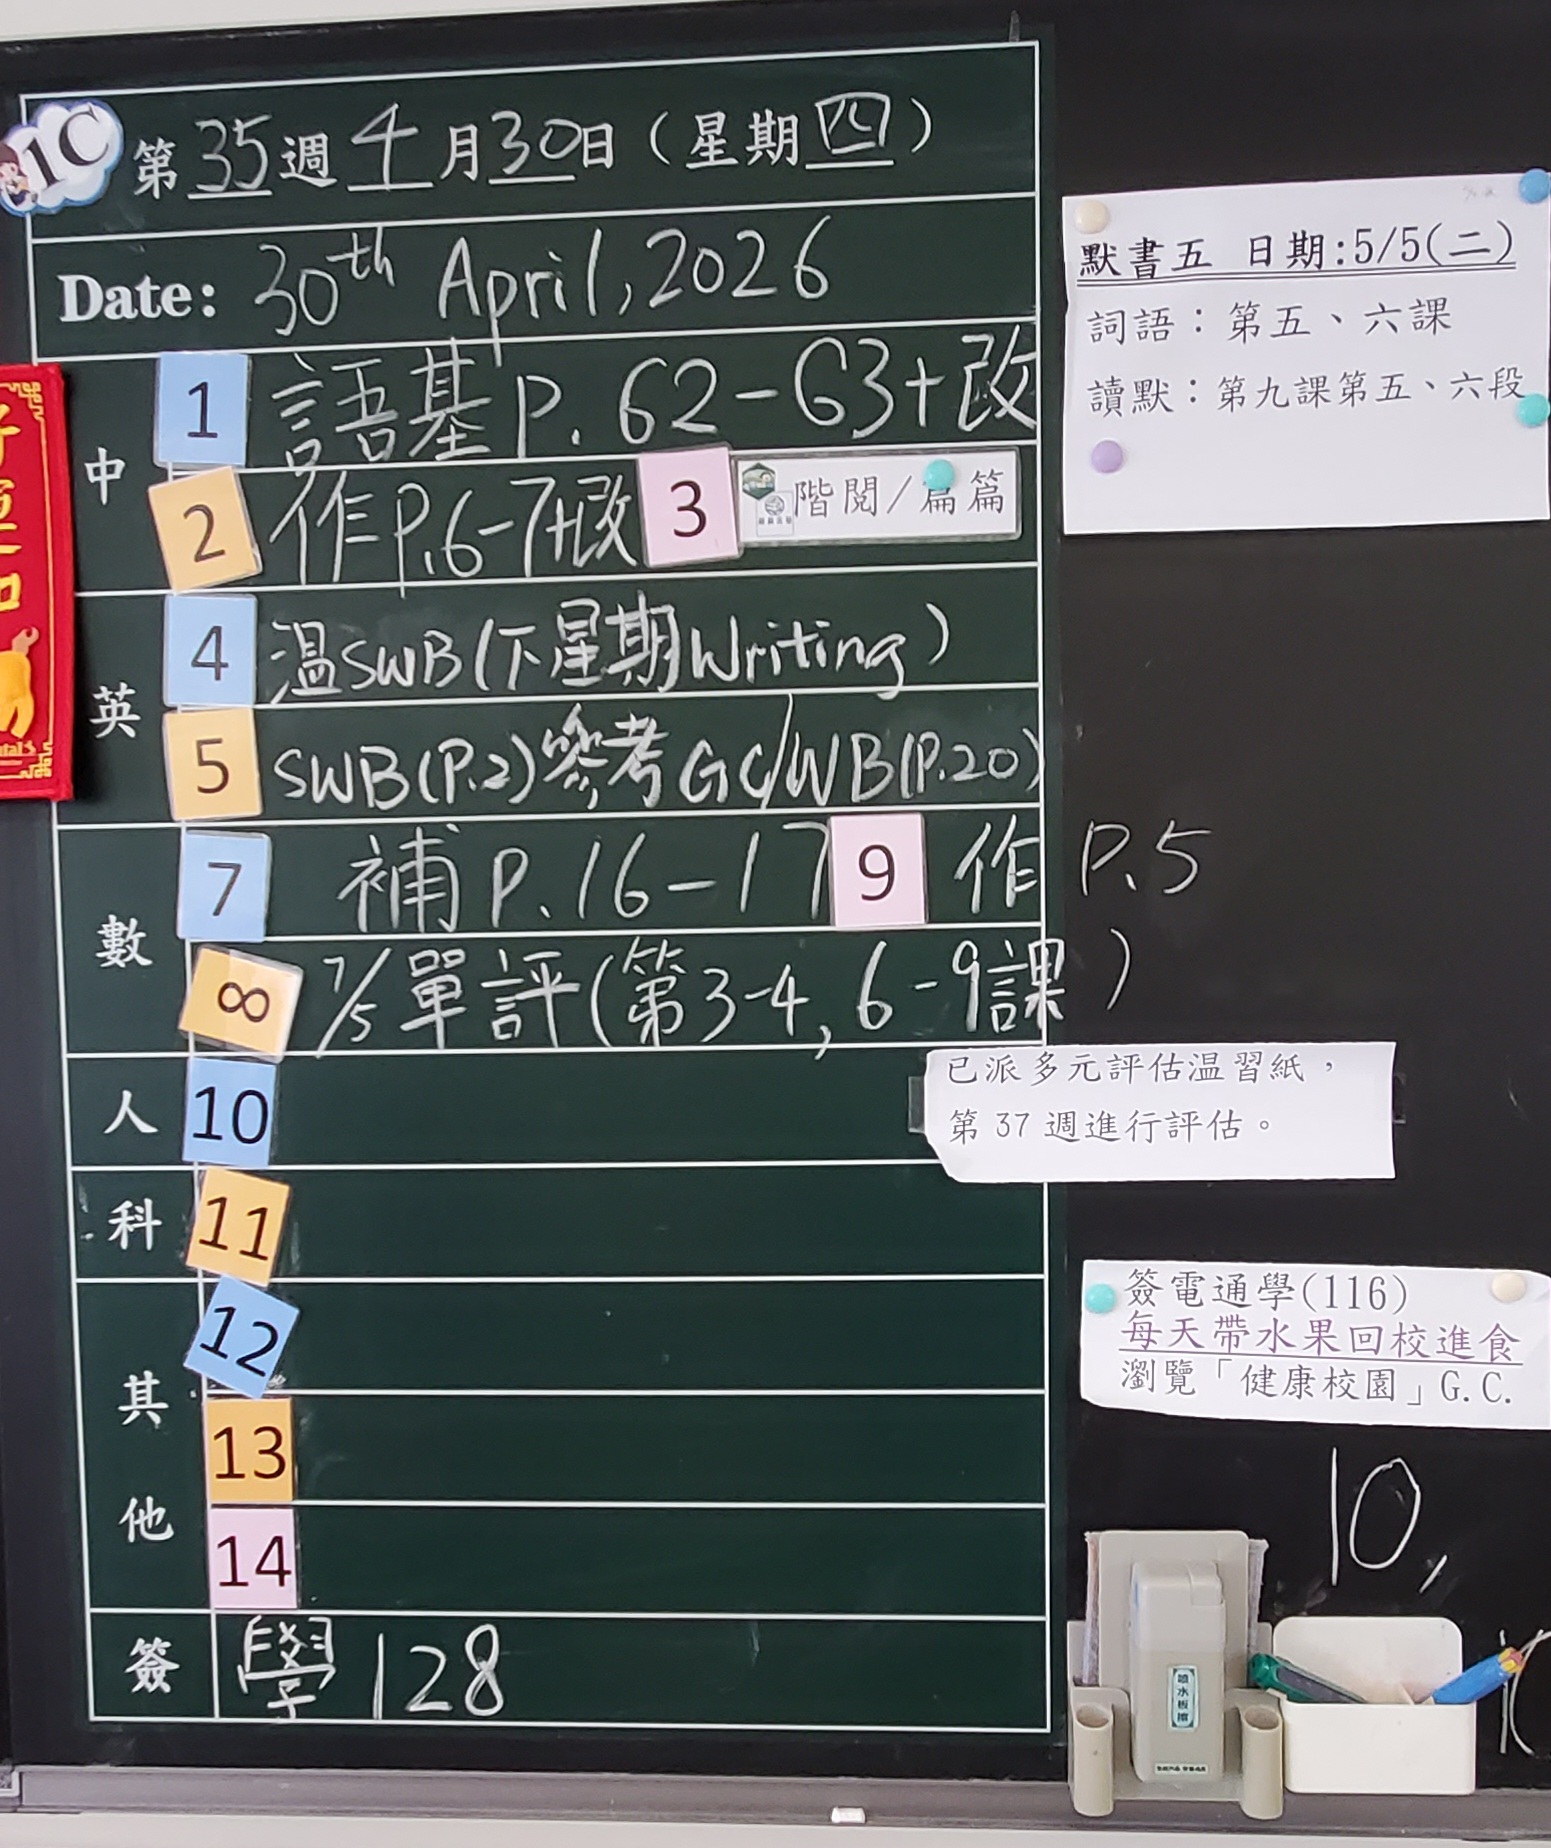 1C
第35週4月30日(星期四)
Date: 30th April, 2026
中
1 語基P.62-63+改
2 作P.6-7+改 3 階閱/篇篇
英
4 温SWB(下星期Writing)
5 SWB(P.2)參考GC/WB(P.20)
數
7 補P.16-17 9 作P.5
8 7/5單評(第3-4, 6-9課)
人
10
科
11
其他
12
13
14
簽
學128
默書五 日期:5/5(二)
詞語:第五、六課
讀默:第九課第五、六段
已派多元評估温習紙,
第37週進行評估。
簽電通學(116)
每天帶水果回校進食
瀏覽「健康校園」G.C.
10,
噴水板擦